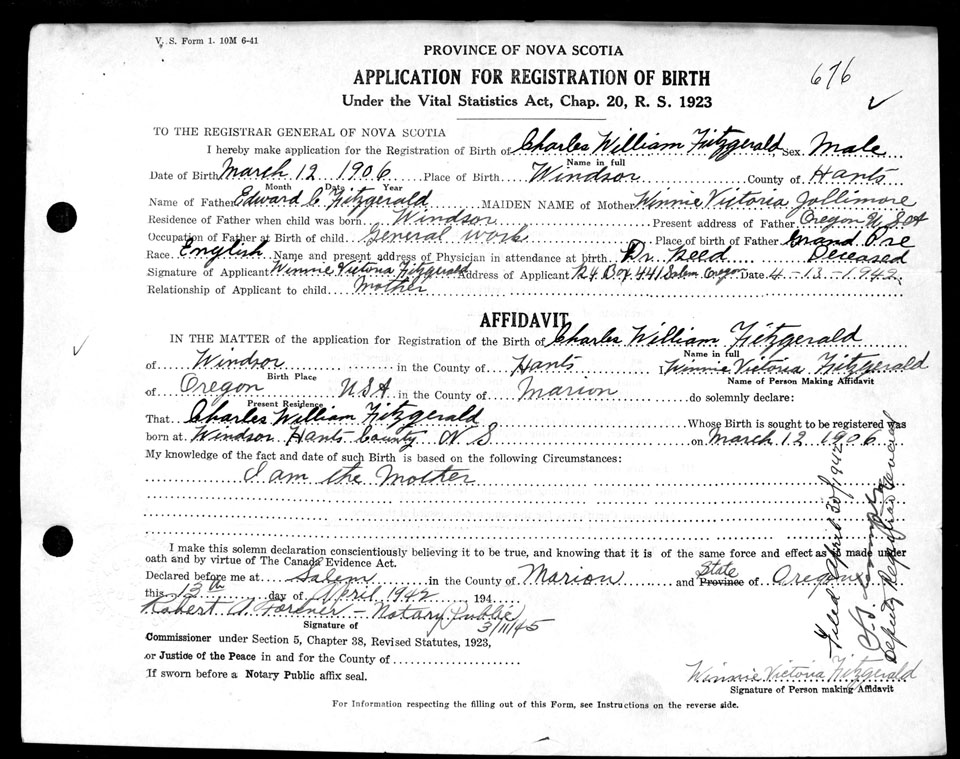 V. S. Form 1. 10M 6-41
PROVINCE OF NOVA SCOTIA
676
APPLICATION FOR REGISTRATION OF BIRTH
Under the Vital Statistics Act, Chap. 20, R. S. 1923
TO THE REGISTRAR GENERAL OF NOVA SCOTIA
I hereby make application for the Registration of Birth of Charles William Fitzgerald Sex Male
Name in full
Date of Birth March 12 1906 Place of Birth Windsor County of Hants
Month Date Year
Name of Father Edward C Fitzgerald MAIDEN NAME of Mother Winnie Victoria Jollimore
Residence of Father when child was born Windsor Present address of Father Oregon U.S.A
Occupation of Father at Birth of child General work Place of birth of Father Grand Pre
Race English Name and present address of Physician in attendance at birth Dr. Reed Deceased
Signature of Applicant Winnie Victoria Fitzgerald Address of Applicant R4 Box 441 Salem Oregon Date 4-13-1942
Relationship of Applicant to child Mother
AFFIDAVIT
IN THE MATTER of the application for Registration of the Birth of Charles William Fitzgerald
Name in full
of Windsor in the County of Hants I Winnie Victoria Fitzgerald
Birth Place Name of Person Making Affidavit
of Oregon USA in the County of Marion do solemnly declare:
Present Residence
That Charles William Fitzgerald Whose Birth is sought to be registered was
born at Windsor Hants County N S on March 12 1906
My knowledge of the fact and date of such Birth is based on following Circumstances:
I am the Mother
I make this solemn declaration conscientiously believing it to be true, and knowing that it is of the same force and effect as if made under
oath and by virtue of The Canada Evidence Act.
Declared before me at Salem in the County of Marion and State Province of Oregon
this 13th day of April 1942 194
Robert A. Forkner - Notary Public
3/11/45
Signature of
Commissioner under Section 5, Chapter 38, Revised Statutes, 1923,
or Justice of the Peace in and for the County of
If sworn before a Notary Public affix seal.
Winnie Victoria Fitzgerald
Signature of Person making Affidavit
For Information respecting the filling out of this Form, see Instructions on the reverse side.
Filed April 30/1942
Deputy Registrar General